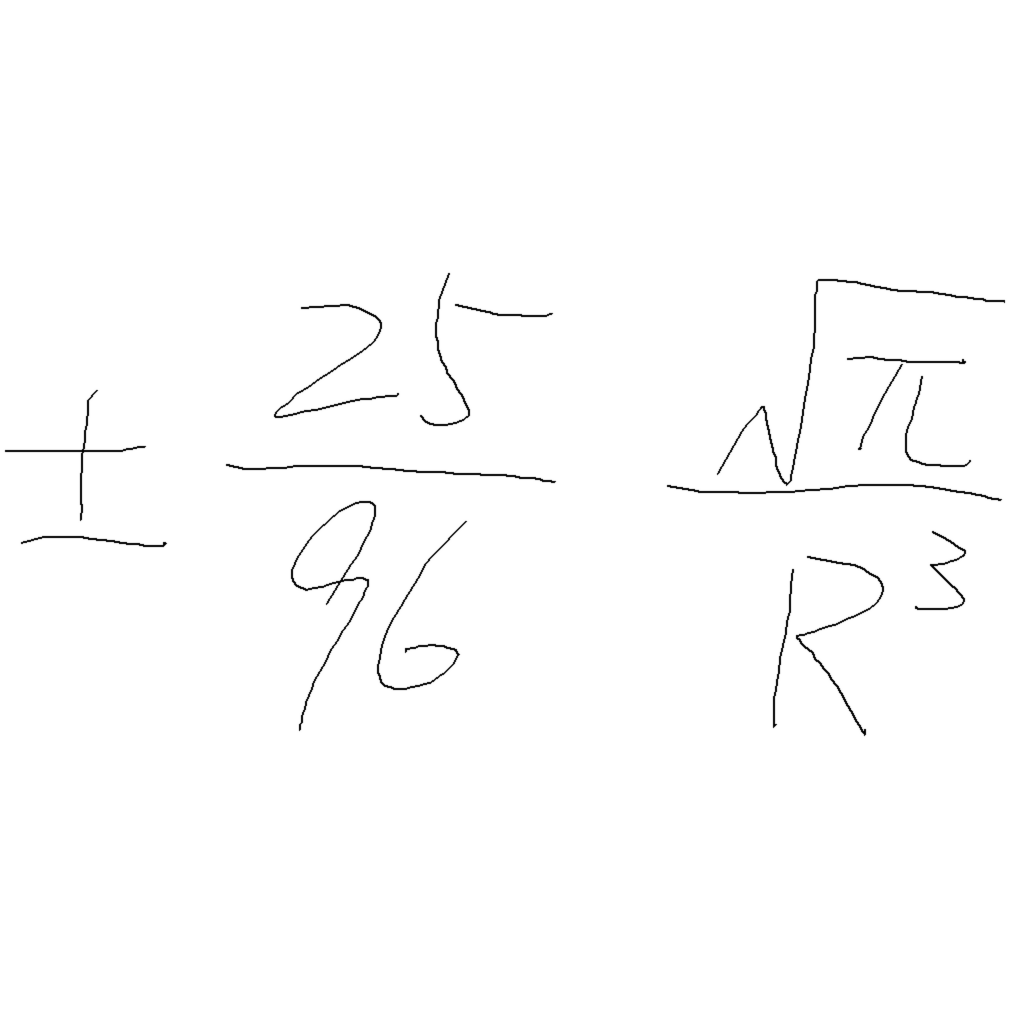 ± \frac{25}{96} \frac{\sqrt{π}}{R^3}